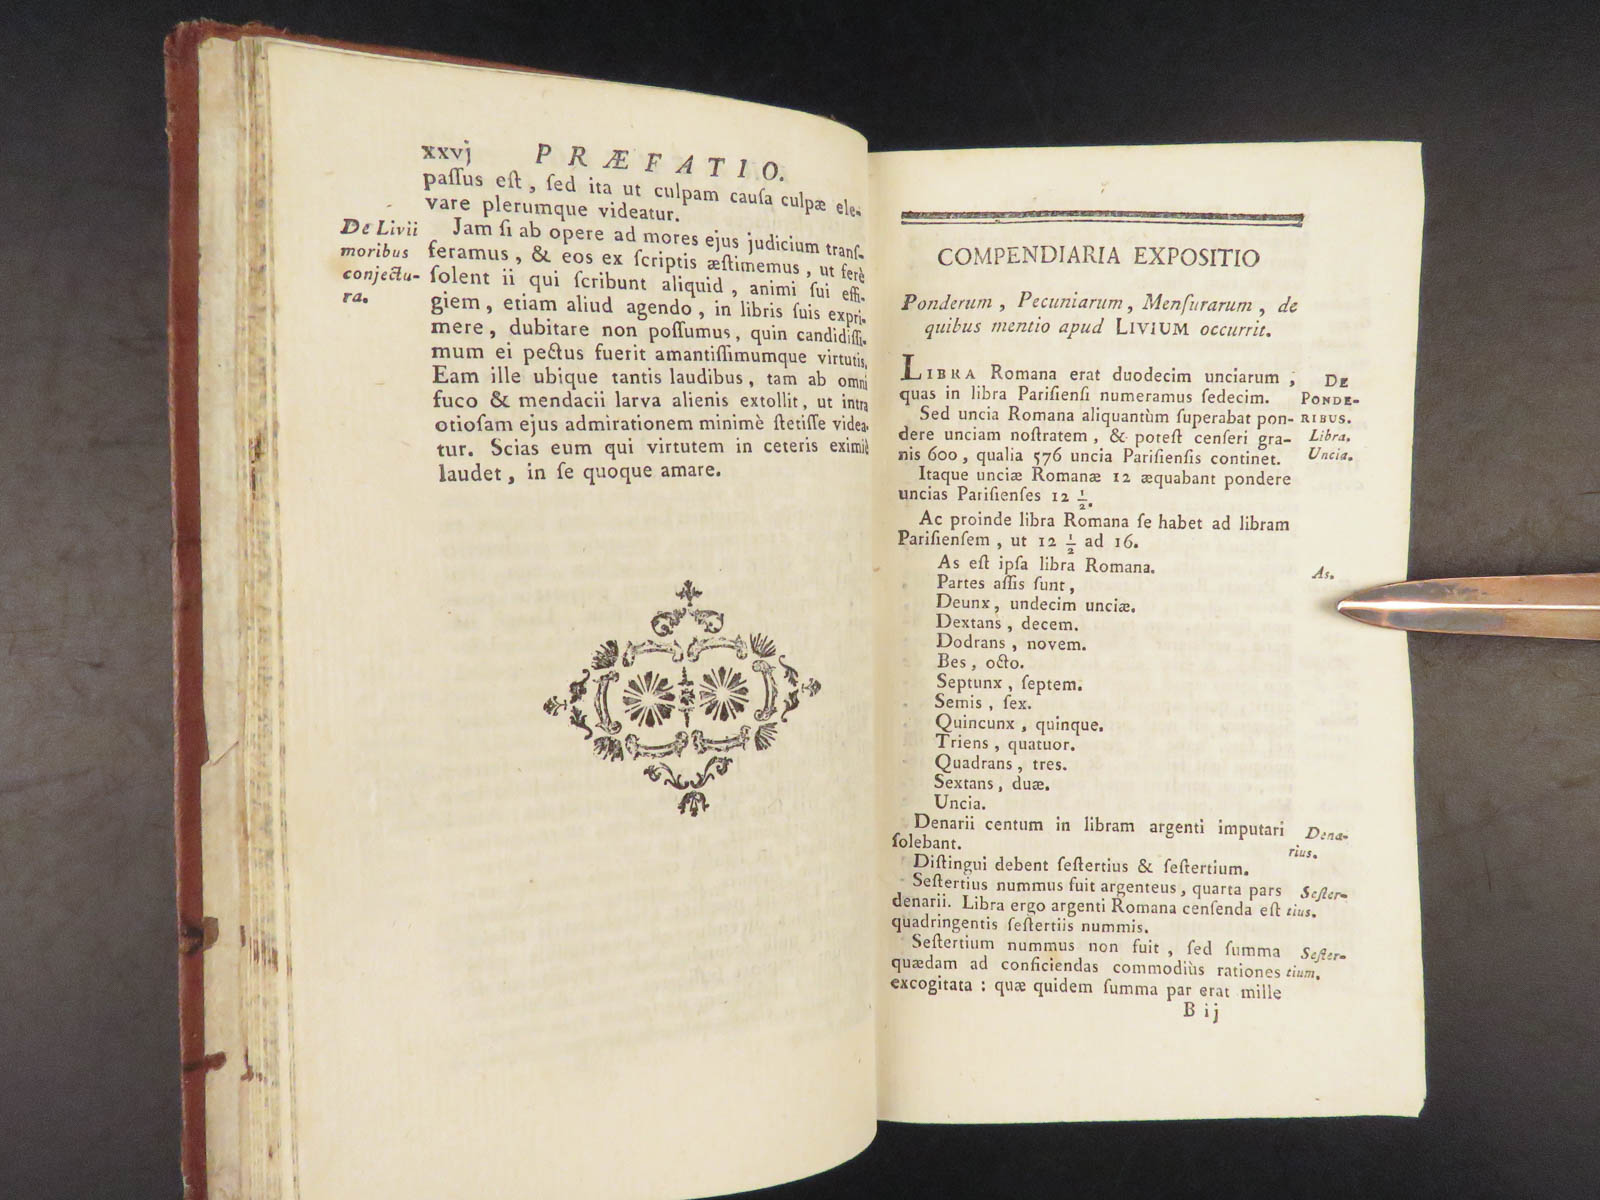 xxvj PRÆFATIO.
passus est, sed ita ut culpam causa culpæ ele-
vare plerumque videatur.
De Livii
moribus
conjectu-
ra.
Jam si ab opere ad mores ejus judicium trans-
feramus, & eos ex scriptis æstimemus, ut ferè
solent ii qui scribunt aliquid, animi sui effi-
giem, etiam aliud agendo, in libris suis expri-
mere, dubitare non possumus, quin candidissi-
mum ei pectus fuerit amantissimumque virtutis.
Eam ille ubique tantis laudibus, tam ab omni
fuco & mendacii larva alienis extollit, ut intra
otiosam ejus admirationem minimè stetisse videa-
tur. Scias eum qui virtutem in ceteris eximiè
laudet, in se quoque amare.
COMPENDIARIA EXPOSITIO
Ponderum, Pecuniarum, Mensurarum, de
quibus mentio apud LIVIUM occurrit.
LIBRA Romana erat duodecim unciarum,
quas in libra Parisiensi numeramus sedecim.
Sed uncia Romana aliquantùm superabat pon-
dere unciam nostratem, & potest censeri gra-
nis 600, qualia 576 uncia Parisiensis continet.
Itaque unciæ Romanæ 12 æquabant pondere
uncias Parisienses 12 1/2.
Ac proinde libra Romana se habet ad libram
Parisiensem, ut 12 1/2 ad 16.
As est ipsa libra Romana.
Partes assis sunt,
Deunx, undecim unciæ.
Dextans, decem.
Dodrans, novem.
Bes, octo.
Septunx, septem.
Semis, sex.
Quincunx, quinque.
Triens, quatuor.
Quadrans, tres.
Sextans, duæ.
Uncia.
Denarii centum in libram argenti imputari
solebant.
Distingui debent sestertius & sestertium.
Sestertius nummus fuit argenteus, quarta pars
denarii. Libra ergo argenti Romana censenda est
quadringentis sestertiis nummis.
Sestertium nummus non fuit, sed summa
quædam ad conficiendas commodiùs rationes
excogitata : quæ quidem summa par erat mille
B ij
DE
PONDE-
RIBUS.
Libra.
Uncia.
As.
Dena-
rius.
Sester-
tius.
Sester-
tium.